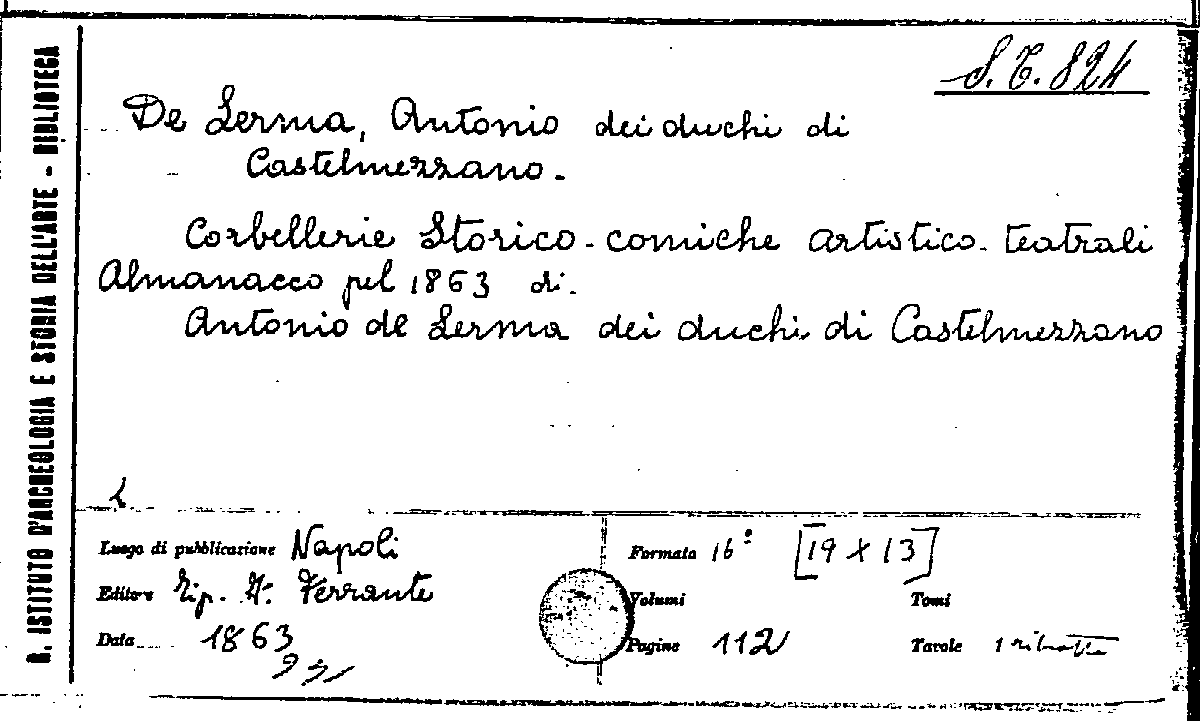 R. ISTITUTO D'ARCHEOLOGIA E STORIA DELL'ARTE - BIBLIOTECA
S.T. 824
De Lerma, Antonio dei duchi di
Castelmezzano.
Corbellerie Storico-comiche artistico-teatrali
Almanacco pel 1863 di.
Antonio de Lerma dei duchi di Castelmezzano
Luogo di pubblicazione Napoli
Formato 16º [19 x 13]
Editore Tip. Ferrante
Volumi
Tomi
Data 1863
Pagine 112
Tavole 1 ritratto